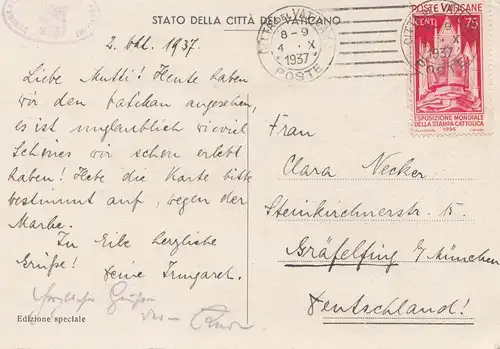 STATO DELLA CITTÀ DEL VATICANO
2. Okt. 1937.
Liebe Mutti! Heute haben
wir den Vatikan angesehen,
es ist unglaublich wieviel
Schönes wir schon erlebt
haben! Hebe die Karte bitte
bestimmt auf, wegen der
Marke.
In Eile herzliche
Grüße!
Deine Irmgard.
Herzliche Grüße
von
Edizione speciale
CITTÀ DEL VATICANO
8-9
4 X
1937
POSTE
1937
POSTE VATICANE
CENT. 75
ESPOSIZIONE MONDIALE
DELLA STAMPA CATTOLICA
1936
Frau
Clara Necker
Steinkirchnerstr. 15.
Gräfelfing b/ München
Deutschland!